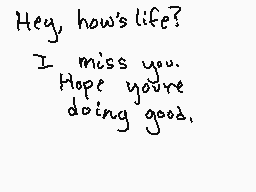 Hey, how's life?
I miss you.
Hope you're
doing good.